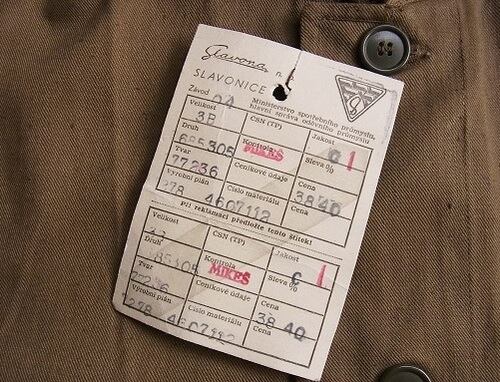 Slavona n. p.
SLAVONICE
Závod 04 Ministerstvo spotřebního průmyslu,
hlavní správa oděvního průmyslu
Velikost ČSN (TP) Jakost
3B C I
Druh Kontrola Sleva %
685305 MIKEŠ
Tvar Ceníkové údaje Cena
77236 38 40
Výrobní plán Číslo materiálu
278 4607112
Při reklamaci předložte tento štítek!
Velikost ČSN (TP) Jakost
C I
Druh Kontrola Sleva %
685305 MIKEŠ
Tvar Ceníkové údaje Cena
77236 38 40
Výrobní plán Číslo materiálu
278 4607112